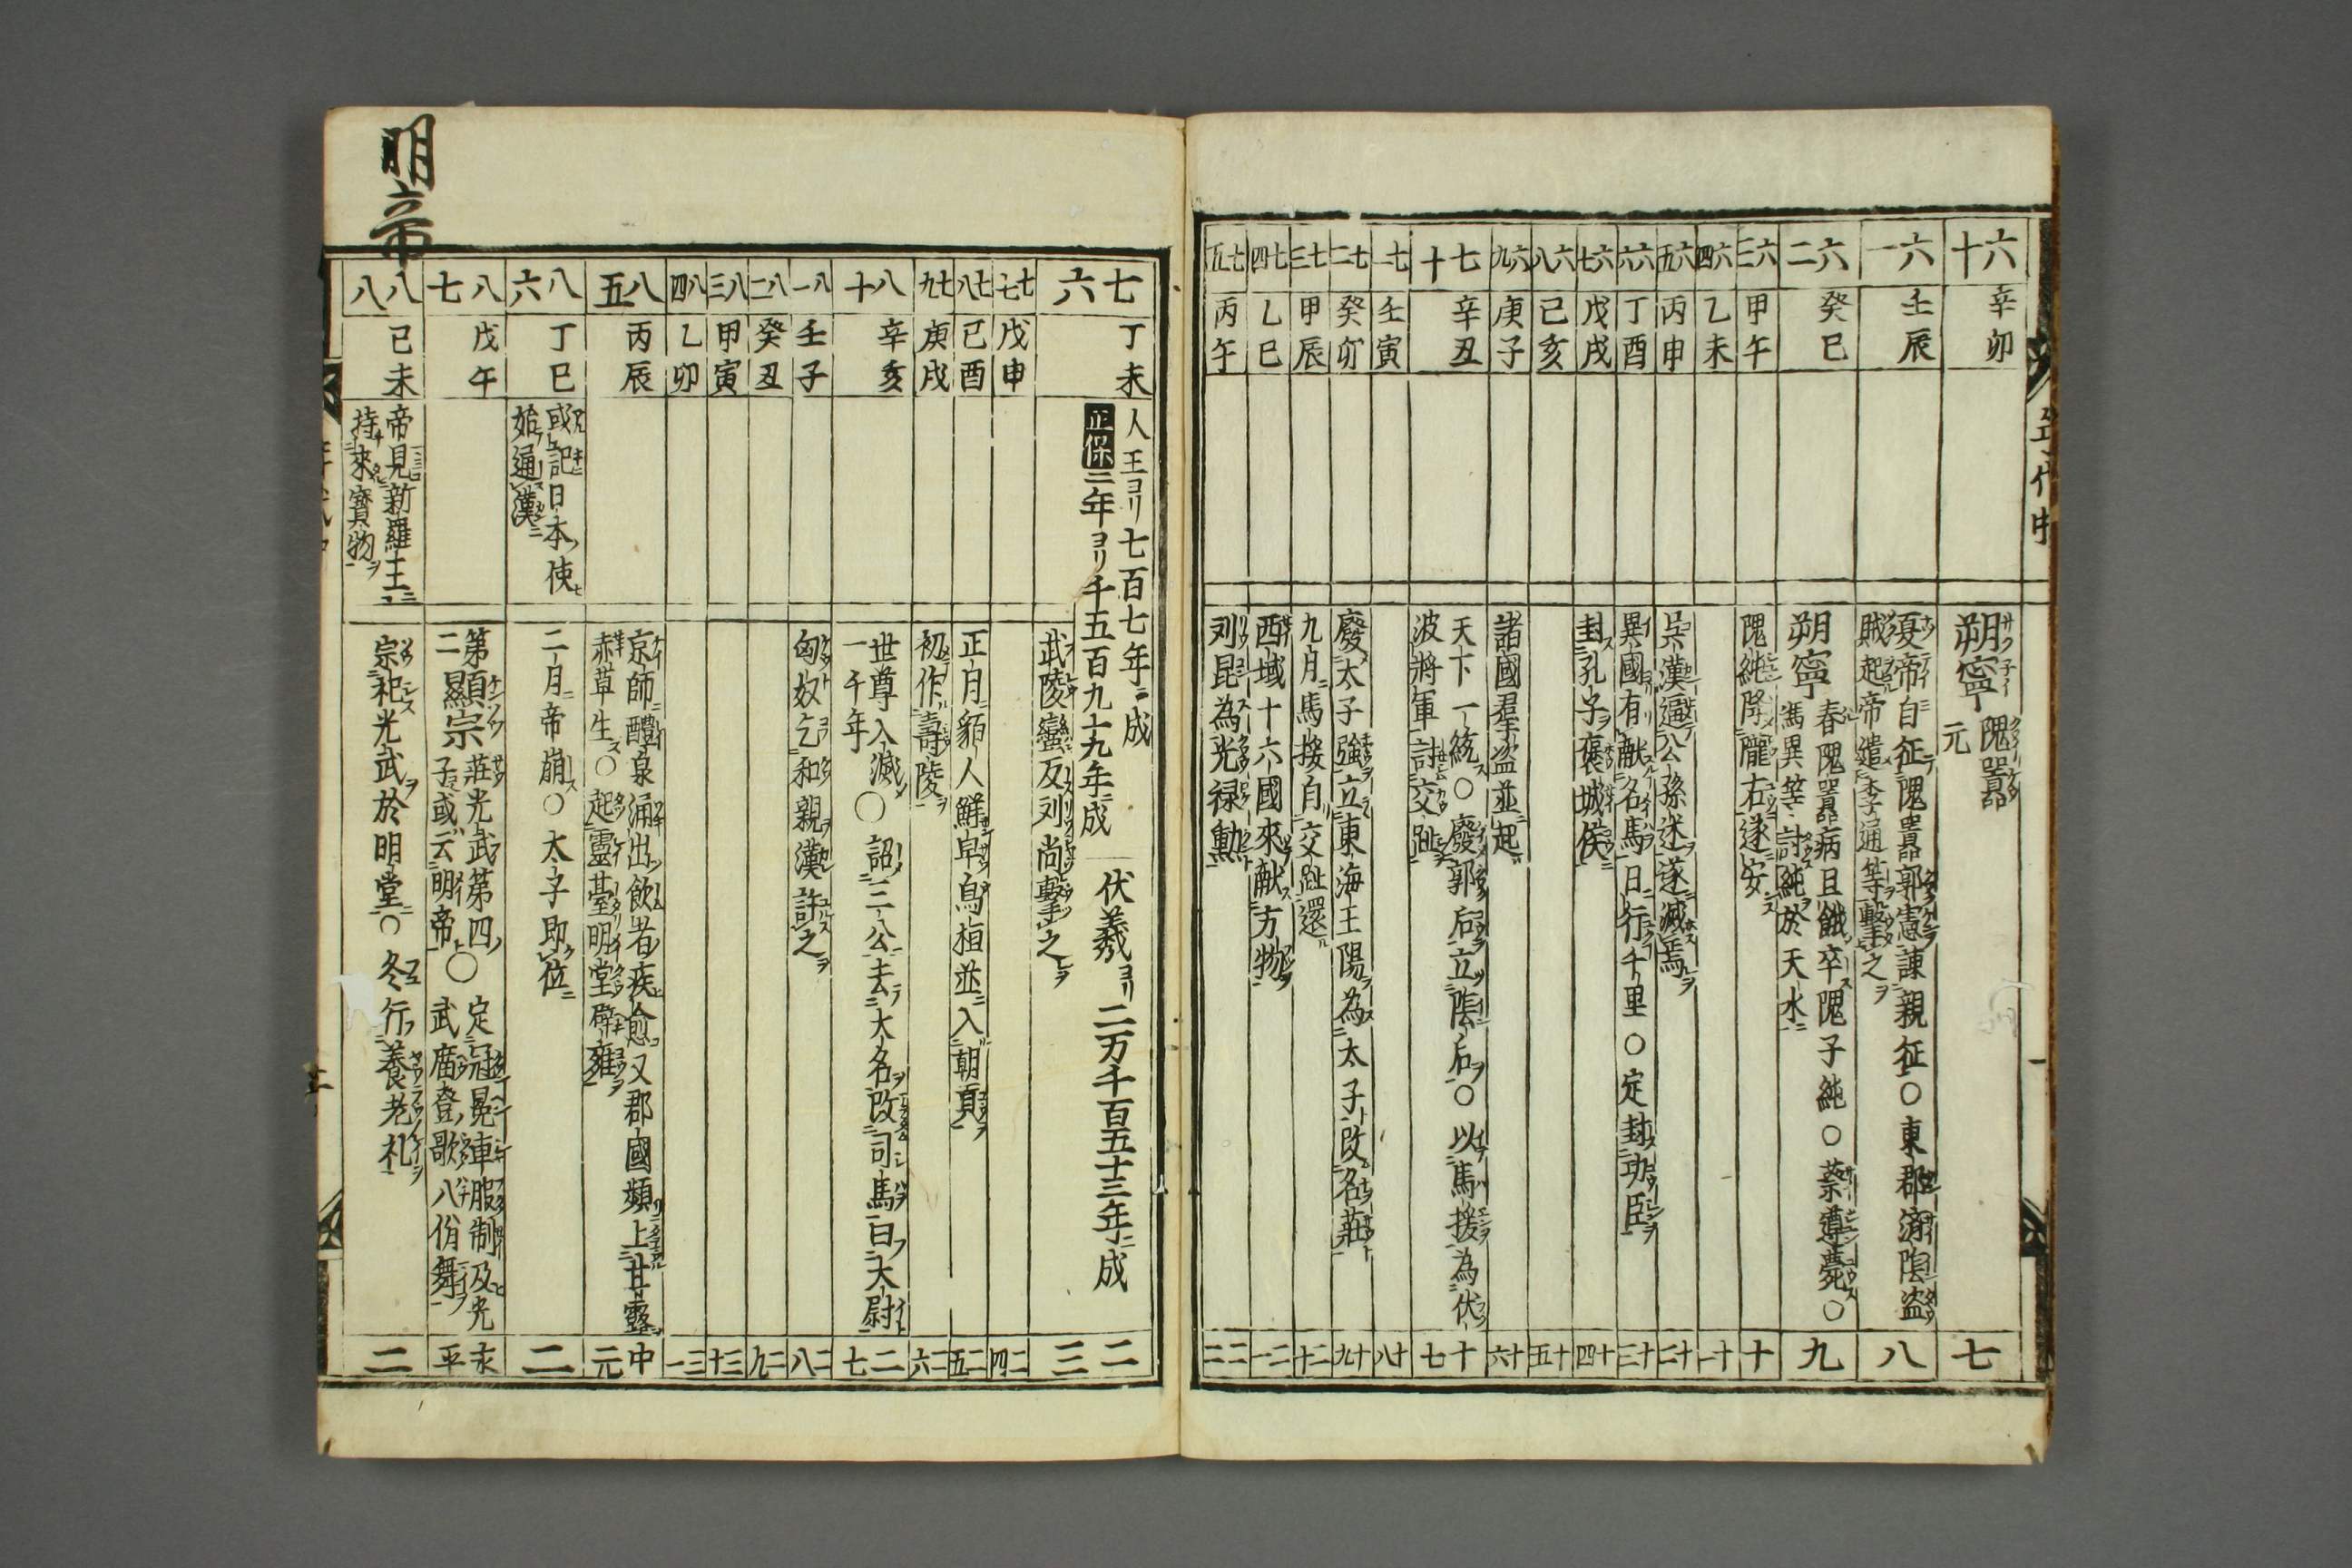 六十
辛卯
朔寧
隗囂
元
七
六一
壬辰
夏帝自征隗囂郭憲諫親征○東郡済陰盗
賊起帝遣李通等撃之
八
六二
癸巳
朔寧
春隗囂病且餓卒隗子純○蔡遵薨○
馮異等討純於天水
九
六三
甲午
隗純降隴右遂安
十
六四
乙未
十一
六五
丙申
呉漢逼公孫述遂滅焉
十二
六六
丁酉
異國有献名馬日行千里○定封功臣
十三
六七
戊戌
封孔子褒城侯
十四
六八
己亥
十五
六九
庚子
諸國羣盗並起
十六
七十
辛丑
天下一統○廢郭后立陰后○以馬援為伏
波將軍討交趾
十七
七一
壬寅
十八
七二
癸卯
廢太子強立東海王陽為太子改名莊
十九
七三
甲辰
九月馬援自交趾還
二十
七四
乙巳
西域十六國來献方物
二一
七五
丙午
刘昆為光禄勲
二二
七六
丁未
人王ヨリ七百七年ニ成
正保三年ヨリ千五百九十九年ニ成
伏羲ヨリ二万千百五十三年ニ成
武陵蠻反刘尚撃之
二三
七七
戊申
二四
七八
己酉
正月貊人鮮卑烏桓並入朝貢
二五
七九
庚戌
初作壽陵
二六
八十
辛亥
世尊入滅○詔三公去大名改司馬曰大尉
一千年
二七
八一
壬子
匈奴乞和親漢許之
二八
八二
癸丑
二九
八三
甲寅
三十
八四
乙卯
三一
八五
丙辰
京師醴泉涌出飲者疾愈又郡國頻上甘露
赤草生○起靈臺明堂辟雍
中元
八六
丁巳
或記日本使
始通漢
二月帝崩○太子即位
二
八七
戊午
第二
顯宗
莊光武第四
子或云明帝
○
定冠冕車服制及光
武廟登歌八佾舞
永平
八八
己未
帝見新羅王
持來寳物
宗祀光武於明堂○冬行養老礼
二
明帝